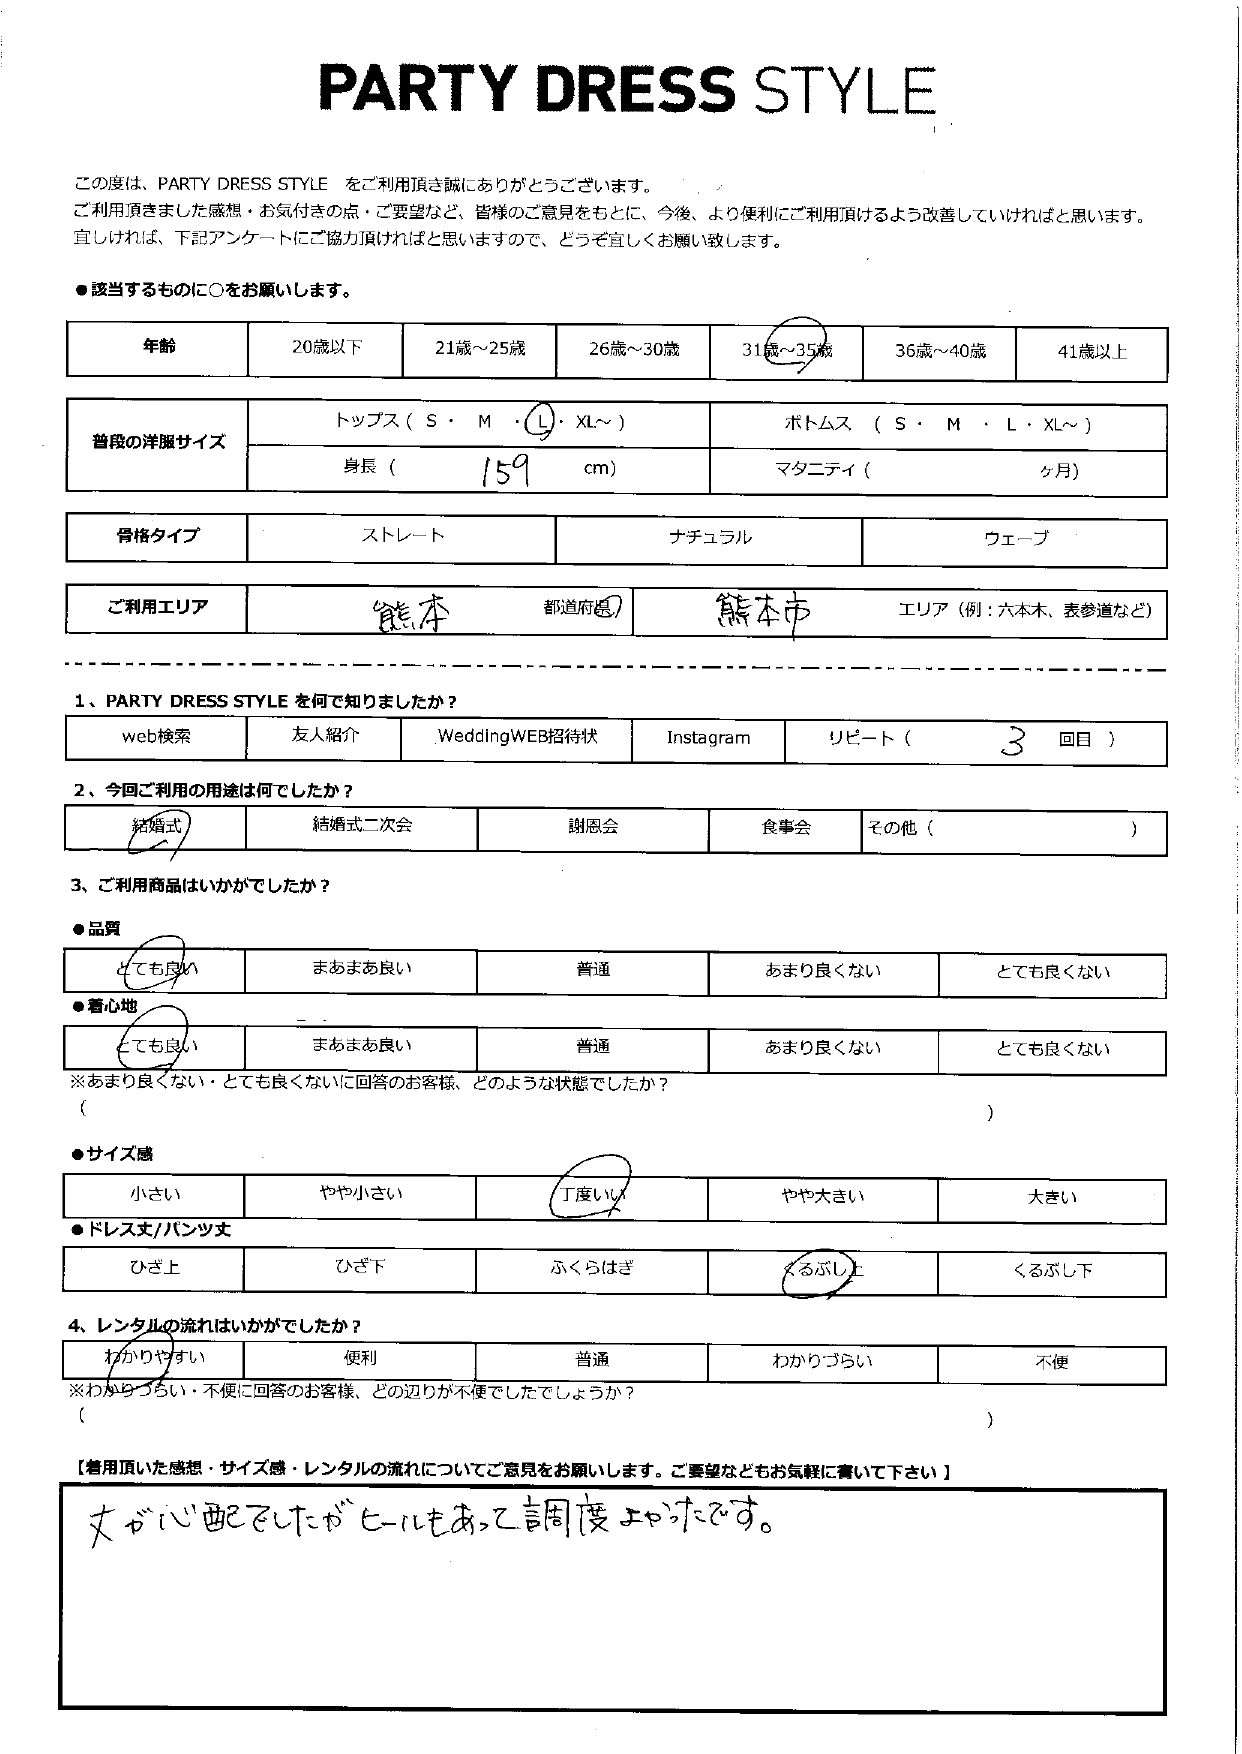 PARTY DRESS STYLE
この度は、PARTY DRESS STYLE をご利用頂き誠にありがとうございます。
ご利用頂きました感想・お気付きの点・ご要望など、皆様のご意見をもとに、今後、より便利にご利用頂けるよう改善していければと思います。
宜しければ、下記アンケートにご協力頂ければと思いますので、どうぞ宜しくお願い致します。
●該当するものに○をお願いします。
年齢 20歳以下 21歳～25歳 26歳～30歳 31歳～35歳 36歳～40歳 41歳以上
普段の洋服サイズ トップス ( S ・ M ・ L ・ XL～ ) ボトムス ( S ・ M ・ L ・ XL～ )
身長 ( 159 cm) マタニティ ( ヶ月)
骨格タイプ ストレート ナチュラル ウェーブ
ご利用エリア 熊本 都道府県 熊本市 エリア（例：六本木、表参道など）
1、PARTY DRESS STYLE を何で知りましたか？
web検索 友人紹介 WeddingWEB招待状 Instagram リピート ( 3 回目 )
2、今回ご利用の用途は何でしたか？
結婚式 結婚式二次会 謝恩会 食事会 その他 ( )
3、ご利用商品はいかがでしたか？
●品質
とても良い まあまあ良い 普通 あまり良くない とても良くない
●着心地
とても良い まあまあ良い 普通 あまり良くない とても良くない
※あまり良くない・とても良くないに回答のお客様、どのような状態でしたか？
( )
●サイズ感
小さい やや小さい 丁度いい やや大きい 大きい
●ドレス丈/パンツ丈
ひざ上 ひざ下 ふくらはぎ くるぶし上 くるぶし下
4、レンタルの流れはいかがでしたか？
わかりやすい 便利 普通 わかりづらい 不便
※わかりづらい・不便に回答のお客様、どの辺りが不便でしたでしょうか？
( )
【着用頂いた感想・サイズ感・レンタルの流れについてご意見をお願いします。ご要望などもお気軽に書いて下さい】
丈が心配でしたがヒールもあって調度よかったです。